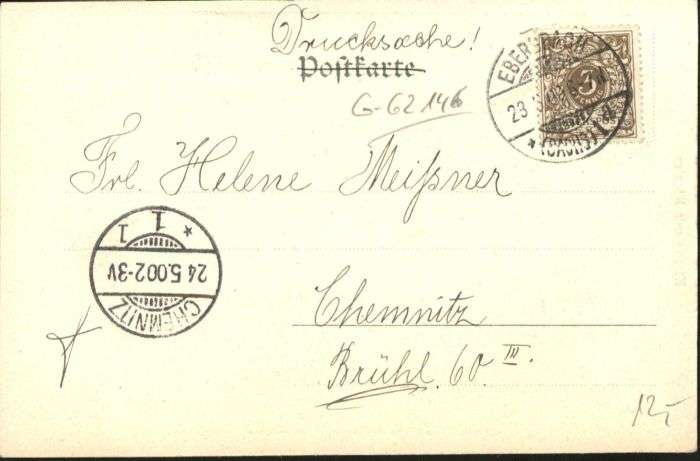 Drucksache!
Postkarte
G-62146
EBERSBACH
23
(SACHS)
3
Frl. Helene Meißner
1
* 1
24.5.00.2-3V
CHEMNITZ
Chemnitz
Brühl. 60 III.
12,-